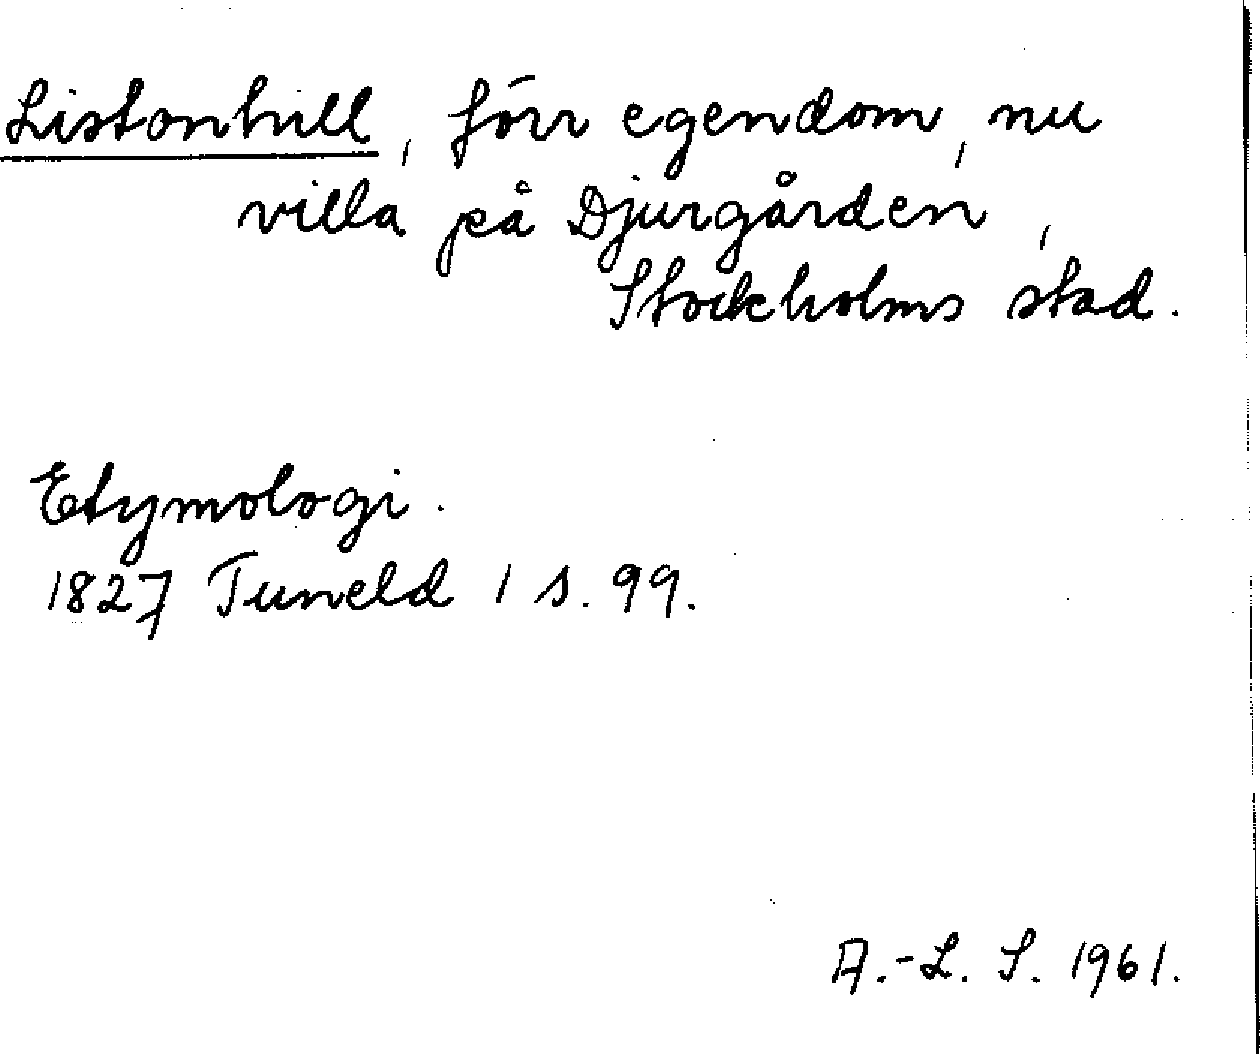 Listonhill, förr egendom, nu
villa på Djurgården,
Stockholms stad.
Etymologi.
1827 Tuneld 1 s. 99.
A.-L. S. 1961.